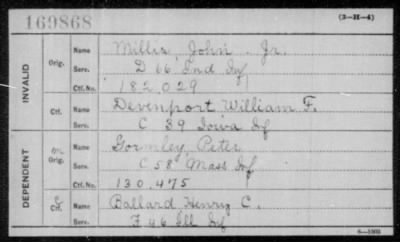 169868
(3-H-4)
INVALID
Orig.
Name Millis, John Jr.
Serv. D 66 Ind Inf
Ctf. No. 182,029
Ctf.
Name Devenport William F.
Serv. C 39 Iowa Inf
DEPENDENT
Orig.
Name Gormley, Peter
Serv. C 58 Mass Inf
Ctf. No. 130,475
Ctf.
Name Ballard Henry C.
Serv. F 46 Ill Inf